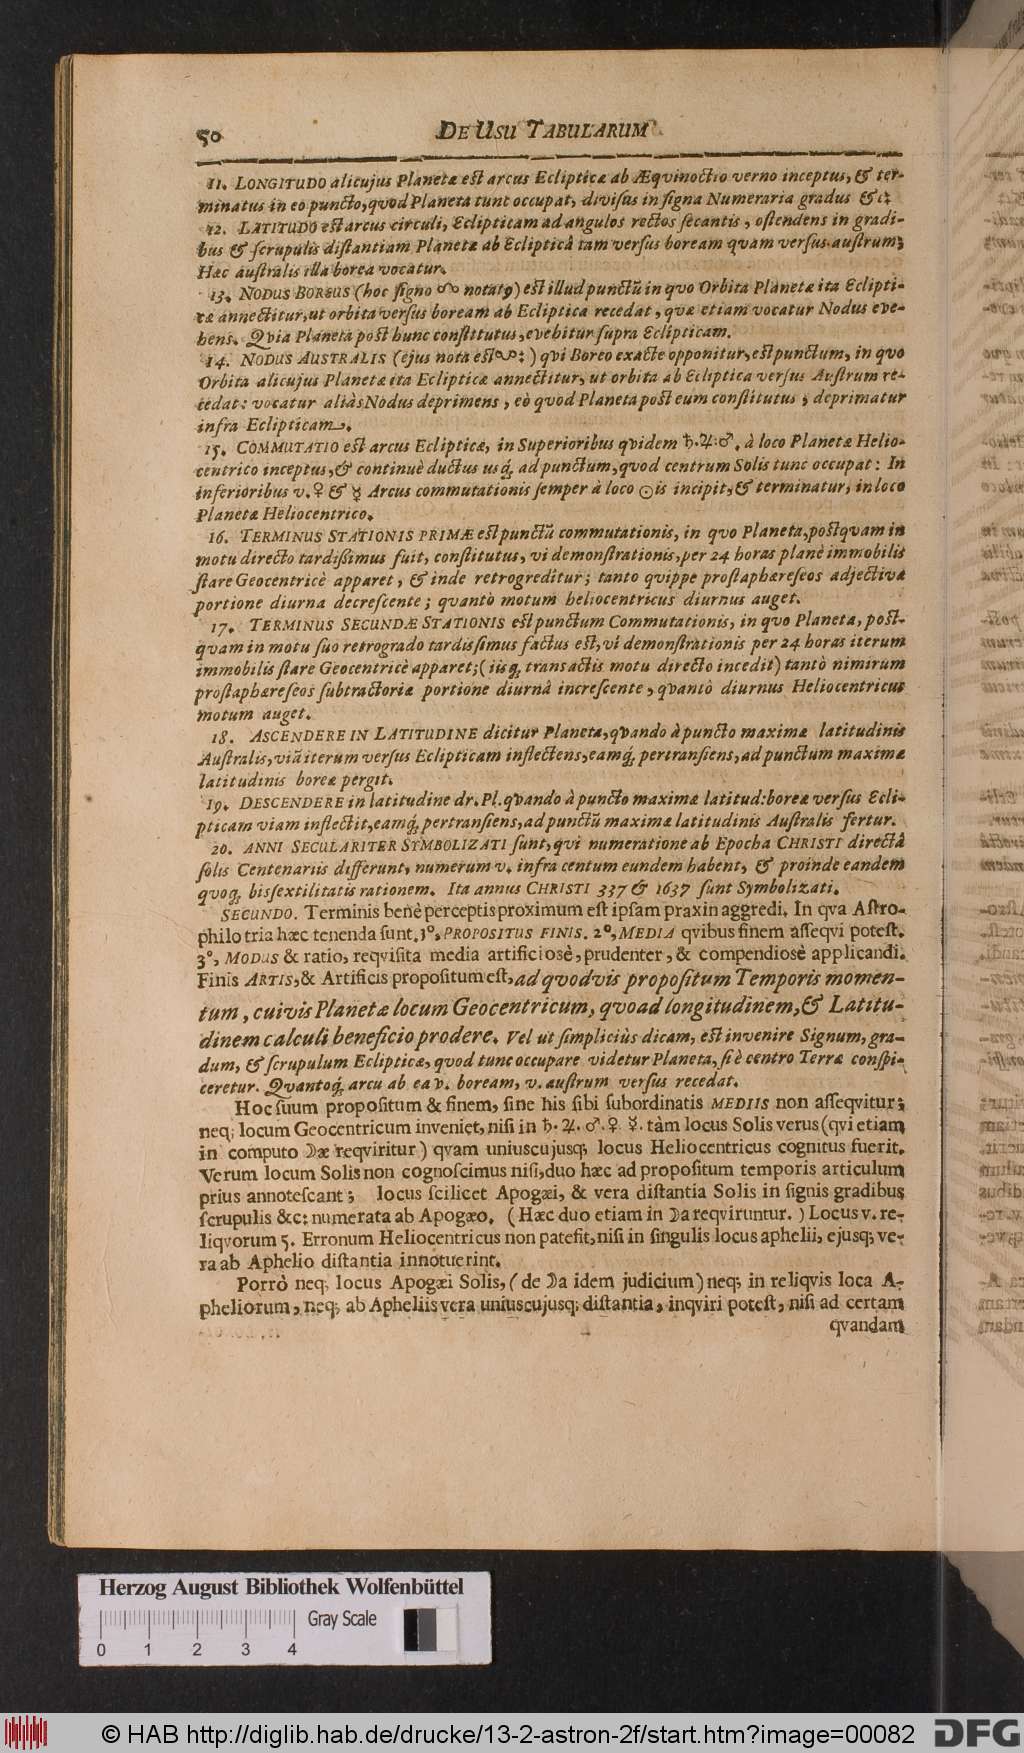 50 DE USU TABULARUM
11. LONGITUDO alicujus Planetæ est arcus Eclipticæ ab Æqvinoctio verno inceptus, & ter-
minatus in eo puncto, qvod Planeta tunt occupat, divisus in signa Numeraria gradus &c:
12. LATITUDO est arcus circuli, Eclipticam ad angulos rectos secantis, ostendens in gradi-
bus & scrupulis distantiam Planetæ ab Eclipticâ tam versus boream qvam versus austrum;
Hæc australis illa borea vocatur.
13. NODUS BOREUS (hoc signo ☊ notatꝰ) est illud punctũ in qvo Orbita Planetæ ita Eclipti-
cæ annectitur, ut orbita versus boream ab Ecliptica recedat, qvæ etiam vocatur Nodus eve-
hens. Qvia Planeta post hunc constitutus, evehitur supra Eclipticam.
14. NODUS AUSTRALIS (ejus nota est ☋:) qvi Boreo exacte opponitur, est punctum, in qvo
Orbita alicujus Planetæ ita Eclipticæ annectitur, ut orbita ab Ecliptica versus Austrum re-
cedat: vocatur aliàs Nodus deprimens, eò qvod Planeta post eum constitutus, deprimatur
infra Eclipticam.
15. COMMUTATIO est arcus Eclipticæ, in Superioribus qvidem ♄.♃.♂. à loco Planetæ Helio-
centrico inceptus, & continuè ductus usq; ad punctum, qvod centrum Solis tunc occupat: In
inferioribus v. ♀ & ☿ Arcus commutationis semper à loco ☉is incipit, & terminatur, in loco
Planetæ Heliocentrico.
16. TERMINUS STATIONIS PRIMÆ est punctũ commutationis, in qvo Planeta, postqvam in
motu directo tardissimus fuit, constitutus, vi demonstrationis, per 24 horas planè immobilis
stare Geocentricè apparet, & inde retrogreditur; tanto qvippe prostaphæreseos adjectivæ
portione diurna decrescente; qvantò motum heliocentricus diurnus auget.
17. TERMINUS SECUNDÆ STATIONIS est punctum Commutationis, in qvo Planeta, post-
qvam in motu suo retrogrado tardissimus factus est, vi demonstrationis per 24 horas iterum
immobilis stare Geocentricè apparet; (iisq; transactis motu directo incedit) tantò nimirum
prostaphæreseos subtractoriæ portione diurnâ increscente, qvantò diurnus Heliocentricus
motum auget.
18. ASCENDERE IN LATITUDINE dicitur Planeta, qvando à puncto maximæ latitudinis
Australis, viã iterum versus Eclipticam inflectens, eamq; pertransiens, ad punctum maximæ
latitudinis boreæ pergit.
19. DESCENDERE in latitudine dr. Pl. qvando à puncto maximæ latitud: boreæ versus Ecli-
pticam viam inflectit, eamq; pertransiens, ad punctũ maximæ latitudinis Australis fertur.
20. ANNI SECULARITER SYMBOLIZATI sunt, qvi numeratione ab Epocha CHRISTI directâ
solis Centenariis differunt, numerum v. infra centum eundem habent, & proinde eandem
quoq; bissextilitatis rationem. Ita annus CHRISTI 337 & 1637 sunt Symbolizati.
SECUNDO. Terminis benè perceptis proximum est ipsam praxin aggredi. In qva Astro-
philo tria hæc tenenda sunt. 1º, PROPOSITUS FINIS. 2º, MEDIA qvibus finem asseqvi potest.
3º, MODUS & ratio, reqvisita media artificiosè, prudenter, & compendiosè applicandi.
Finis ARTIS, & Artificis propositum est, ad qvodvis propositum Temporis momen-
tum, cuivis Planetæ locum Geocentricum, qvoad longitudinem, & Latitu-
dinem calculi beneficio prodere. Vel ut simpliciùs dicam, est invenire Signum, gra-
dum, & scrupulum Eclipticæ, qvod tunc occupare videtur Planeta, si è centro Terræ conspi-
ceretur. Qvantoq; arcu ab ea v. boream, v. austrum versus recedat.
Hoc suum propositum & finem, sine his sibi subordinatis MEDIIS non asseqvitur;
neq; locum Geocentricum inveniet, nisi in ♄. ♃. ♂. ♀ ☿. tàm locus Solis verus (qvi etiam
in computo ☽æ reqviritur) qvam uniuscujusq; locus Heliocentricus cognitus fuerit.
Verum locum Solis non cognoscimus nisi, duo hæc ad propositum temporis articulum
prius annotescant; locus scilicet Apogæi, & vera distantia Solis in signis gradibus
scrupulis &c: numerata ab Apogæo. (Hæc duo etiam in ☽a reqviruntur.) Locus v. re-
liqvorum 5. Erronum Heliocentricus non patefit, nisi in singulis locus aphelii, ejusq; ve-
ra ab Aphelio distantia innotuerint.
Porrò neq; locus Apogæi Solis, (de ☽a idem judicium) neq; in reliqvis loca A-
pheliorum, neq; ab Apheliis vera uniuscujusq; distantia, inqviri potest, nisi ad certam
qvandam
Herzog August Bibliothek Wolfenbüttel
Gray Scale
0 1 2 3 4
© HAB http://diglib.hab.de/drucke/13-2-astron-2f/start.htm?image=00082 DFG